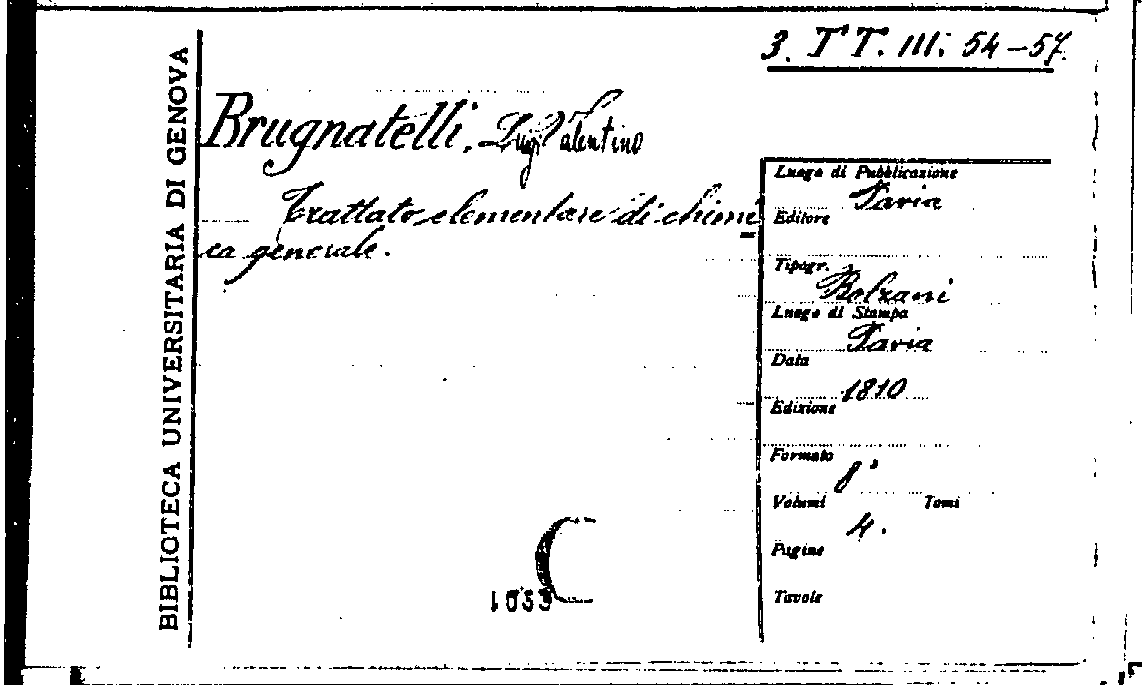 3. TT. III. 54-57.
BIBLIOTECA UNIVERSITARIA DI GENOVA
Brugnatelli, Luigi Valentino
Trattato elementare di chimi
ca generale.
Luogo di Pubblicazione
Pavia
Editore
Tipogr.
Bolzani
Luogo di Stampa
Pavia
Data
1810
Edizione
Formato
8°
Volumi Tomi
4.
Pagine
Tavole
C